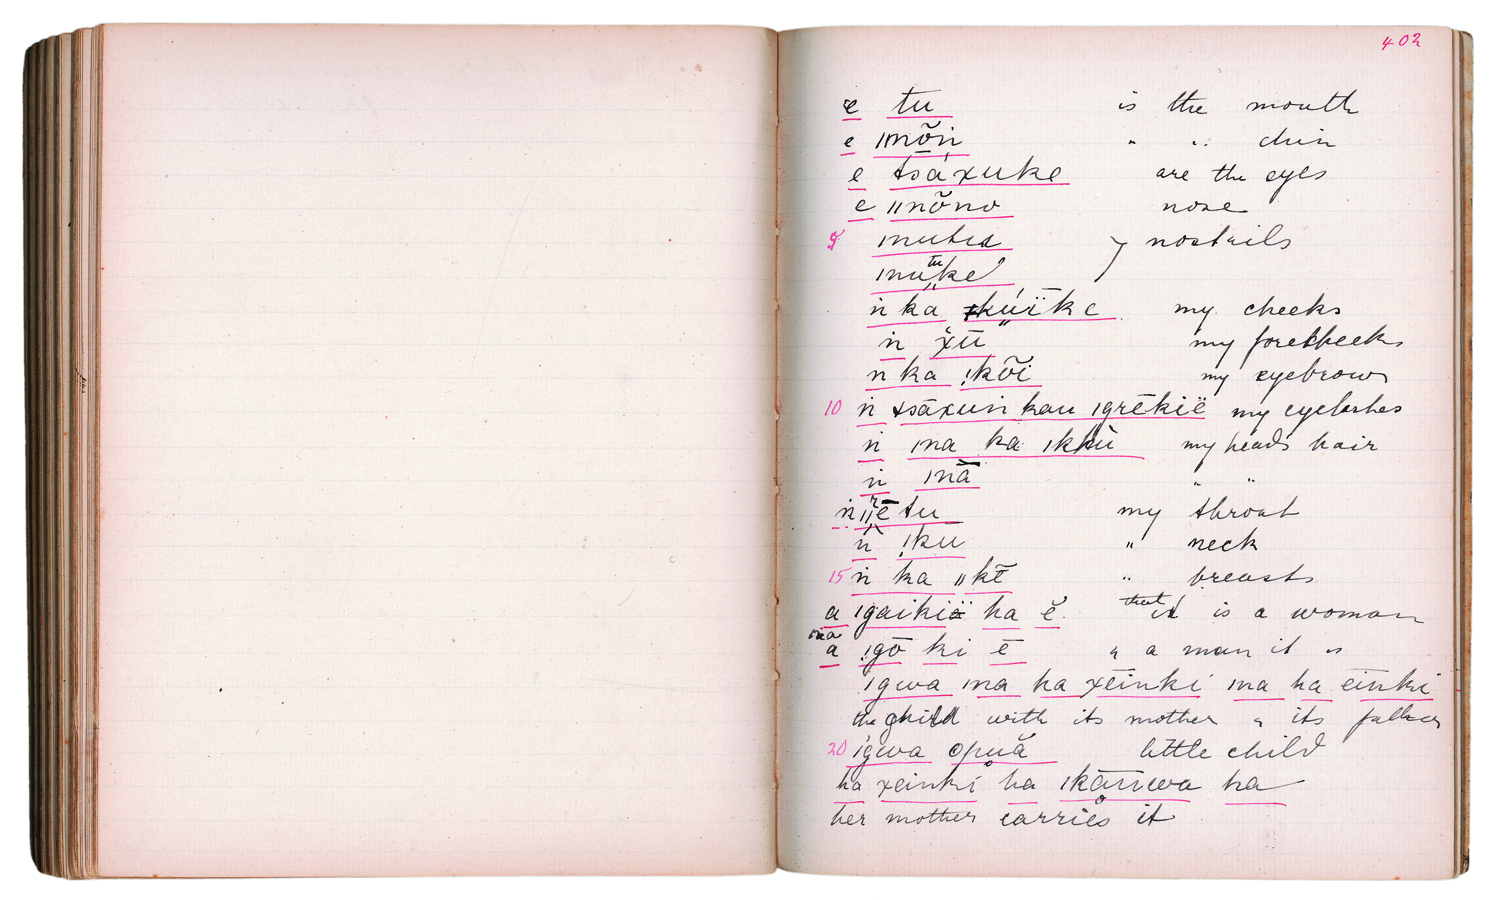 402
e tu is the mouth
e ǀmõṅ " " chin
e tsáxuke are the eyes
e ǁnõno nose
5 ǀnutu } nostrils
ǀnutuke
ṅ ka kúïke my cheeks
ṅ xū my forecheeks
ṅ ka !kõi my eyebrows
10 ṅ tsāxuṅ kau ǀgrēkië my eyelashes
ṅ ǀna ka ǀkhù my heads hair
ṅ ǀnā " "
ṅ ētu my throat
ṅ !ku " neck
15 ṅ ka ǁkē " breasts
a ǀgaikiä ha ĕ that is a woman
a !gō ki ē " a man it is
ǀgwa ǀna ha xēinki ǀna ha einki
the child with its mother " its father
20 ǀgwa opuă little child
ha xēinki ha ǀkāuwa ha
her mother carries it